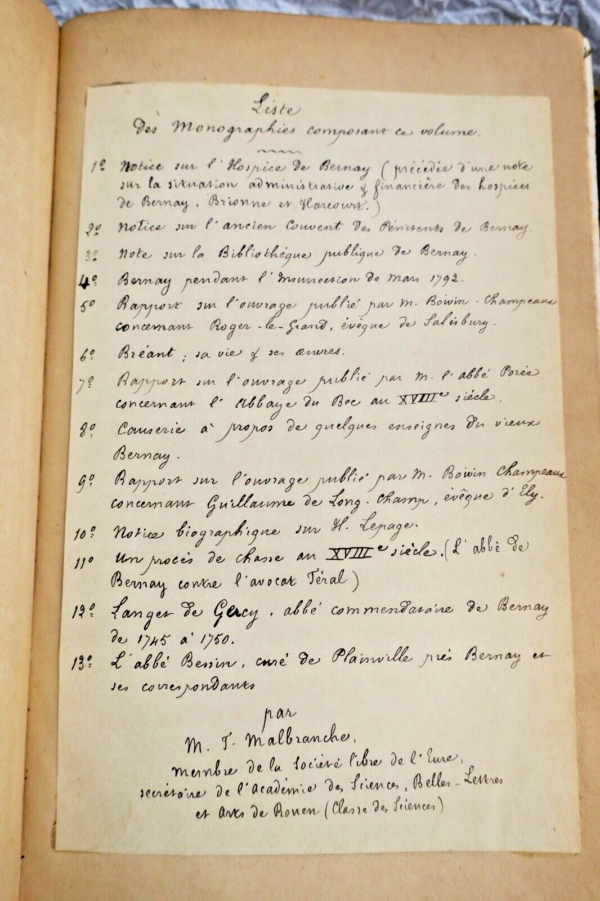 Liste
Des Monographies composant ce volume.
1º Notice sur l'Hospice de Bernay (précédée d'une note
sur la situation administrative & financière des hospices
de Bernay, Brionne et Harcourt.)
2º Notice sur l'ancien Couvent des Pénitents de Bernay.
3º Note sur la Bibliothèque publique de Bernay.
4º Bernay pendant l'Insurrection de Mars 1792.
5º Rapport sur l'ouvrage publié par M. Boivin-Champeaux
concernant Roger-le-Grand, évêque de Salisbury.
6º Bréant; sa vie & ses œuvres.
7º Rapport sur l'ouvrage publié par M. l'abbé Porée
concernant l'Abbaye du Bec au XVIIIe siècle.
8º Causerie à propos de quelques enseignes du vieux
Bernay.
9º Rapport sur l'ouvrage publié par M. Boivin Champeaux
concernant Guillaume de Long-Champ, évêque d'Ély.
10º Notice biographique sur H. Lepage.
11º Un procès de chasse au XVIIIe siècle. (L'abbé de
Bernay contre l'avocat Féral)
12º Languet de Gercy, abbé commendataire de Bernay
de 1745 à 1750.
13º L'abbé Bessin, curé de Plainville près Bernay et
ses correspondants
par
M. T. Malbranche,
membre de la Société libre de l'Eure,
secrétaire de l'Académie des Sciences, Belles-Lettres
et Arts de Rouen (Classe des Sciences)